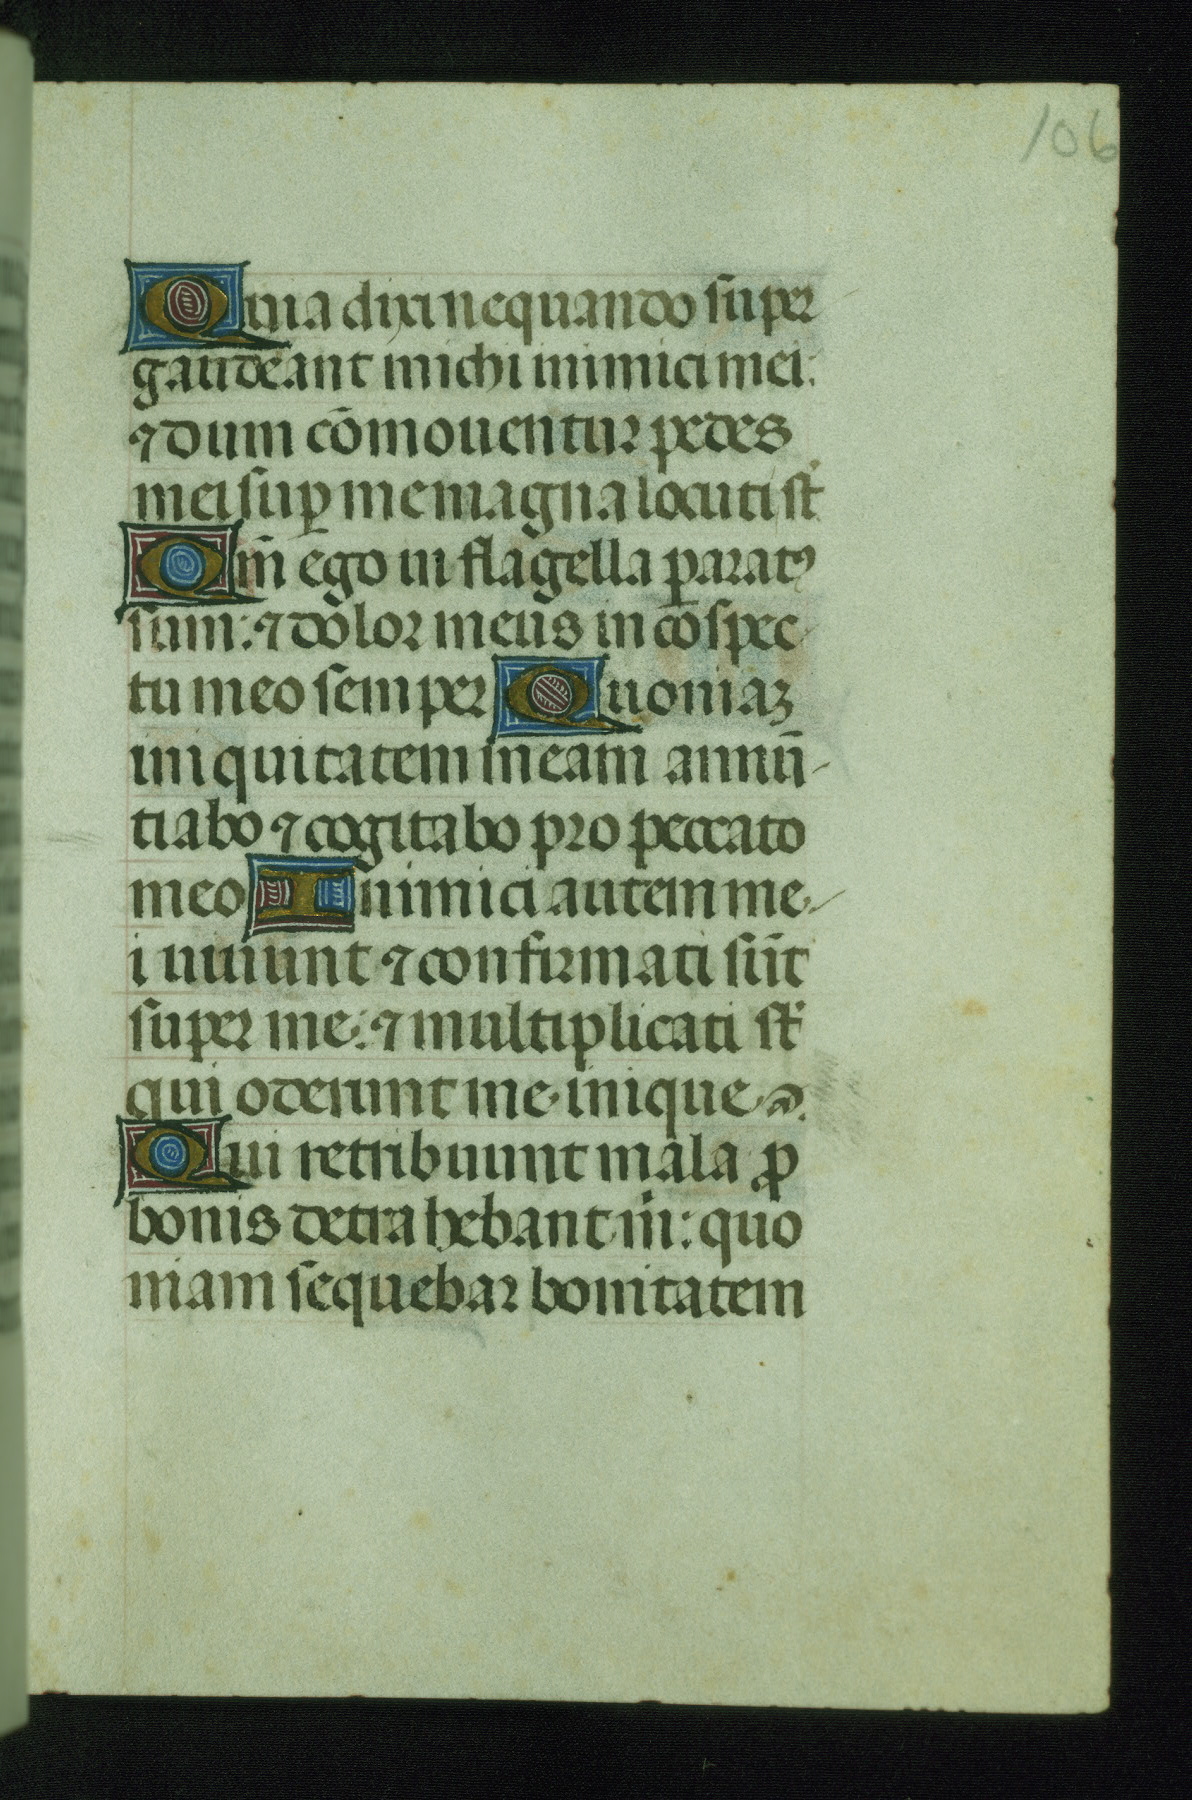 106
Quia dixi nequando super
gaudeant michi inimici mei:
⁊ dum cōmouentur pedes
mei sup̱ me magna locuti st̄
Qm̄ ego in flagella paratꝰ
sum: ⁊ dolor meus in cōspec
tu meo semper Quoniaꝫ
iniquitatem meam annū-
tiabo ⁊ cogitabo pro peccato
meo Inimici autem me-
i uiuunt ⁊ confirmati sūt
super me: ⁊ multiplicati st̄
qui oderunt me inique
Qui retribuunt mala ꝓ
bonis detrahebant m̄: quo
niam sequebar bonitatem